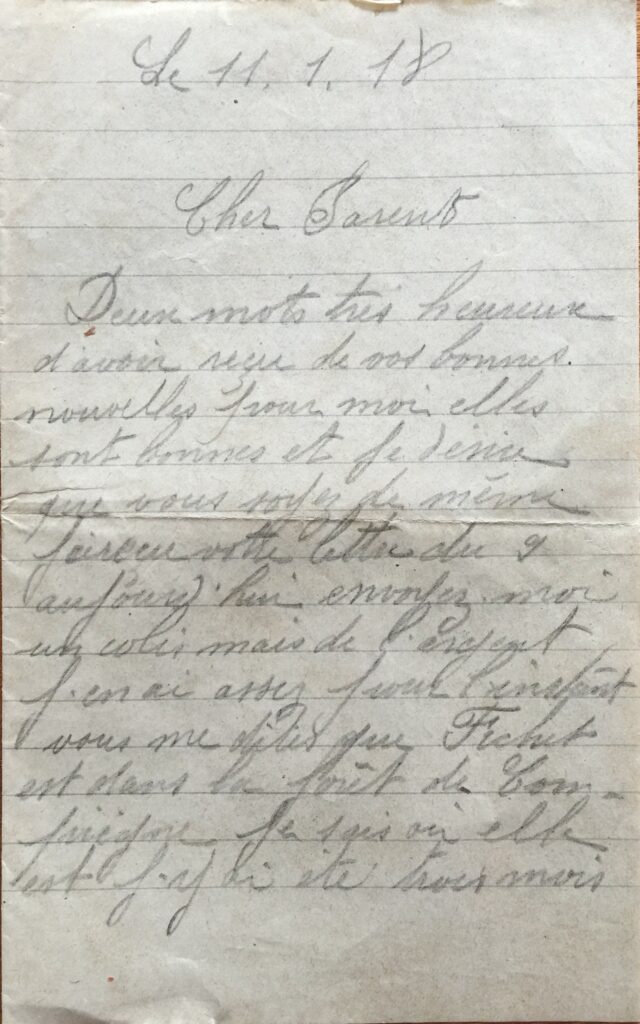 Le 11. 1. 18
Cher Parents
Deux mots très heureux
d'avoir reçu de vos bonnes.
nouvelles pour moi elles
sont bonnes et je désire
que vous soyez de même
j'ai reçu votre lettre du 9
aujourd'hui envoyez moi
un colis mais de l'argent
j. en ai assez pour l'instant
vous me dites que Fichet
est dans la forêt de Com-
piègne je sais où elle
est j. y ai été trois mois